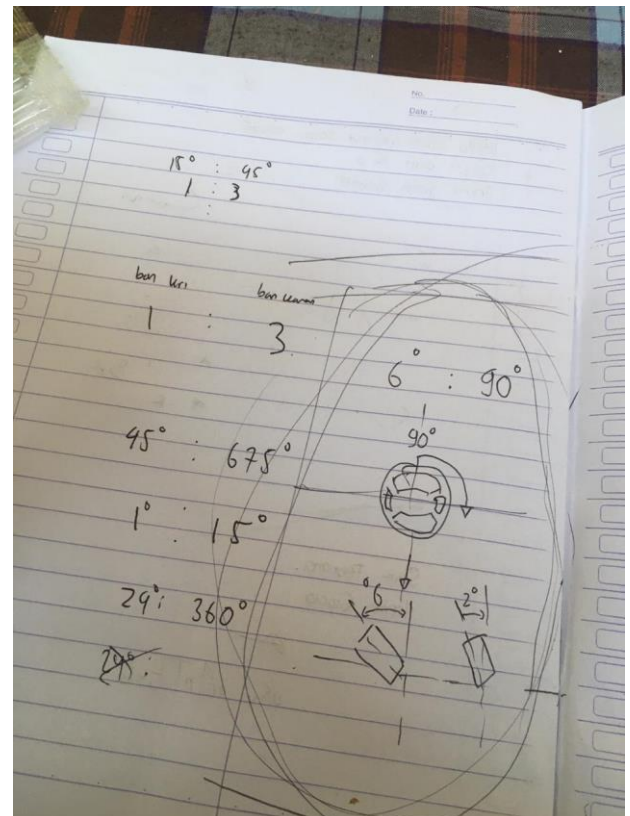 No.
Date :
15° : 45°
1 : 3
:
ban kiri ban kanan
1 : 3
6° : 90°
90°
45° : 675°
1° : 15°
24° : 360°
°6 2°
24° :